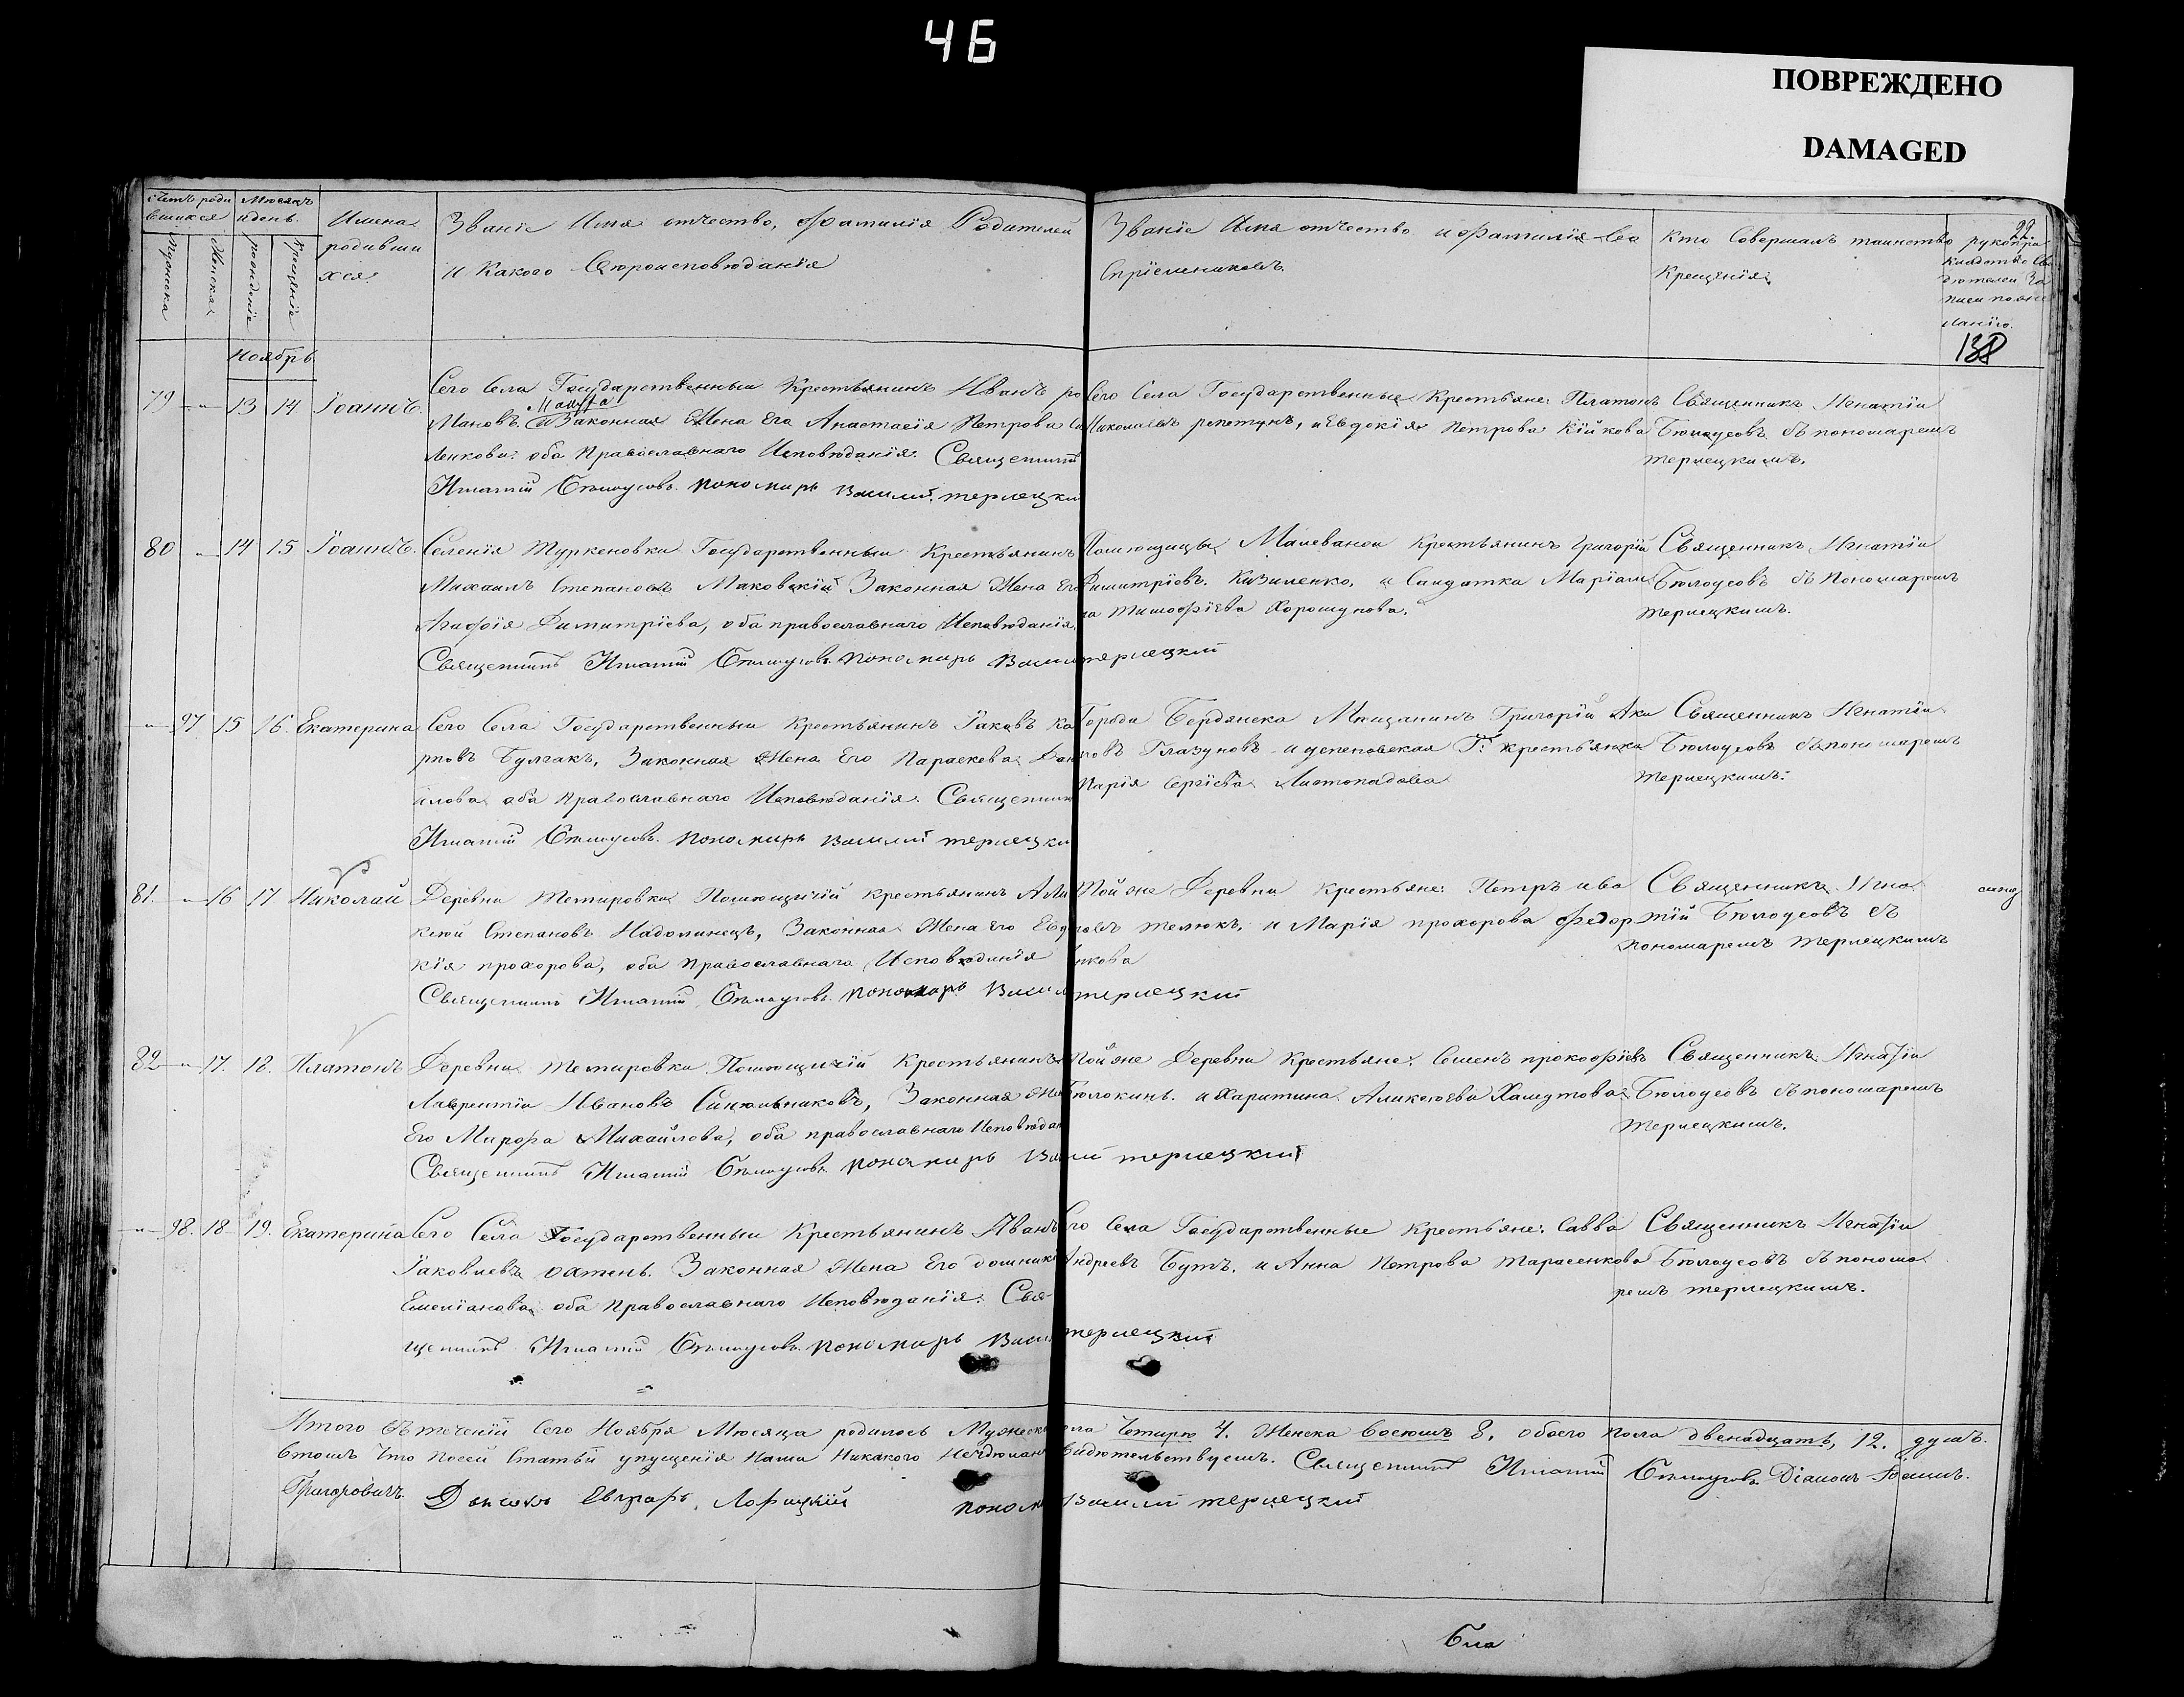 46
ПОВРЕЖДЕНО
DAMAGED
Счетъ роди
вшихся
Мѣсяцъ
и день
Имена
родивши
хся
Званіе Имя отчество, фамилія Родителей
и Какого Вѣроисповѣданія
Званіе Имя отчество и фамилія Во
спріемниковъ
Кто Совершалъ таинство
Крещенія
22.
рукопри
кладство Св
дѣтелей За
писи по же
ланію.
138
Мужска
Женска
рожденіе
Крещеніе
Ноябрь
79 — 13 14 Іоаннъ.
Сего Села Государственный Крестьянинъ Иванъ ро
мановъ. Законная Жена Его Анастасія Петрова
оба Православнаго Исповѣданія. Священникъ
Игнатій Бѣлоусовъ. пономарь Василій терлецкій
Сего Села Государственные Крестьяне: Платонъ
Николаевъ репетунъ, и Евдокія Петрова Кійкова
Священникъ Игнатій
Бѣлоусовъ съ пономаремъ
терлецкимъ.
80 — 14 15 Іоаннъ.
Селенія Туркеновки Государственный Крестьянинъ
Михаилъ Степановъ Маковскій Законная Жена Его
Агафія Димитріева, оба православнаго Исповѣданія.
Священникъ Игнатій Бѣлоусовъ пономарь Василій терлецкій
Помѣщицы Малеваной крестьянинъ Григорій
Димитріевъ. Кизиленко, и Салдатка Маріам
на Тимофіева Хорошунова.
Священникъ Игнатій
Бѣлоусовъ съ Пономаремъ
терлецкимъ.
— 97 15 16. Екатерина
Сего Села Государственный Крестьянинъ Іаковъ Ка
рповъ Булгакъ, Законная Жена Его Параскева Дан
илова оба Православнаго Исповѣданія. Священникъ
Игнатій Бѣлоусовъ. пономарь Василій терлецкій
Города Бердянска Мѣщанинъ Григорій Аки
мовъ Глазуновъ и успеновская Г. крестьянка
Марія Сергіева Листопадова
Священникъ Игнатій
Бѣлоусовъ съ пономаремъ
терлецкимъ.
81. — 16 17 Николай
Деревни Темировки Помѣщичій крестьянинъ Але
ксѣй Степановъ Надолинецъ, Законная Жена Его Евдо
кія прохорова, оба Православнаго Исповѣданія
Священникъ Игнатій Бѣлоусовъ. пономарь Василій терлецкій
Той же Деревни крестьяне: Петръ ива
новъ телюкъ, и Марія прохорова Федор
нкова
Священникъ Игна
тій Бѣлоусовъ съ
пономаремъ терлецкимъ
82 — 17. 18. Платонъ
Деревни Темировки Помѣщичій Крестьянинъ
Лаврентій Ивановъ Синельниковъ, Законная Жена
Его Марфа Михайлова, оба православнаго Исповѣдан
Священникъ Игнатій Бѣлоусовъ. пономарь Василій терлецкій
Той же Деревни Крестьяне: Семенъ прокофіевъ
Бѣлокинь. и Харитина Алексѣева Хамутова
Священникъ Игнатій
Бѣлоусовъ съ пономаремъ
терлецкимъ.
— 98. 18 19. Екатерина
Сего Села Государственный Крестьянинъ Иванъ
Іаковлевъ охтень. Законная Жена Его домники
Емеліанова оба Православнаго Исповѣданія. Свя
щенникъ Игнатій Бѣлоусовъ. пономарь Василій терлецкій
Его Села Государственные Крестьяне: Савва
Андреевъ Бутъ. и Анна Петрова Тарасенкова
Священникъ Игнатій
Бѣлоусовъ съ понома
ремъ терлецкимъ.
Итого въ теченіи Сего Ноября Мѣсяца родилось Мужеска пола Четыре 4. Женска Восемъ 8. обоего пола двенадцать, 12. душъ.
Втомъ что посей Статьи упущенія Нами Никакого Неучинено Свидѣтельствуемъ. Священникъ Игнатій Бѣлоусовъ. Діаконъ Іоаннъ
Григоровичъ. Дьячокъ Евграфъ пономарь Василій терлецкій